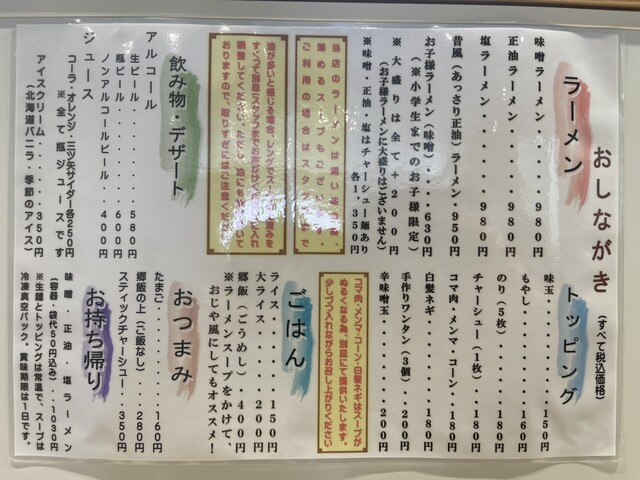 おしながき
(すべて税込価格)
ラーメン
味噌ラーメン・・・・・980円
正油ラーメン・・・・・980円
塩ラーメン・・・・・・980円
昔風(あっさり正油)ラーメン・950円
お子様ラーメン(味噌)・・・・630円
(※小学生までのお子様限定)
※大盛りは全て+200円
(お子様ラーメンに大盛りはございません)
※味噌・正油・塩はチャーシュー麺あり
各1,350円
飲み物・デザート
アルコール
生ビール・・・・・・580円
瓶ビール・・・・・・600円
ノンアルコールビール・400円
ジュース
コーラ・オレンジ・三ツ矢サイダー各250円
※全て瓶ジュースです
アイスクリーム・・・・・350円
(北海道バニラ・季節のアイス)
トッピング
味玉・・・・・・・・・150円
もやし・・・・・・・・160円
のり(5枚)・・・・・・180円
チャーシュー(1枚)・・・180円
コマ肉・メンマ・コーン・・180円
白髪ネギ・・・・・・・180円
手作りワンタン(3個)・・200円
辛味噌玉・・・・・・・200円
コマ肉・メンマ・コーン・白髪ネギはスープが
ぬるくなる為、別皿にて提供いたします。
少しづつ入れながらお召し上がりください
ごはん
ライス・・・・・150円
大ライス・・・・200円
郷飯(ごうめし)・・400円
※ラーメンスープをかけて、
おじや風にしてもオススメ!
おつまみ
たまご・・・・・・・160円
郷飯の上(ご飯なし)・・280円
スティックチャーシュー・・350円
お持ち帰り
味噌・正油・塩ラーメン
(容器・袋代50円込み)・・1030円
※生麺とトッピングは常温で、スープは
冷凍真空パック、賞味期限は1日です。